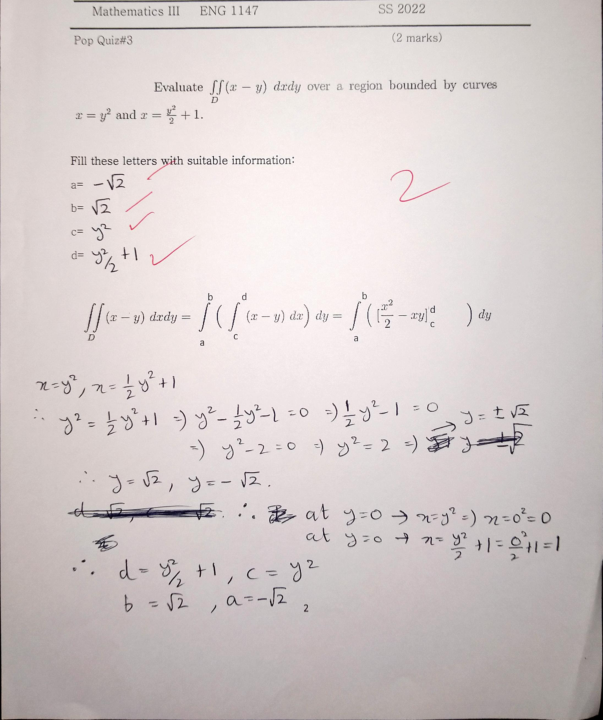 Mathematics III ENG 1147 SS 2022
Pop Quiz#3 (2 marks)
Evaluate ∬(x − y) dxdy over a region bounded by curves
D
x = y² and x = y²/2 + 1.
Fill these letters with suitable information:
a= −√2
b= √2
c= y²
d= y²/2 +1
2
∬(x − y) dxdy = ∫ₐᵇ ( ∫_c^d (x − y) dx) dy = ∫ₐᵇ ( [x²/2 − xy]_c^d ) dy
D
x=y², x= 1/2 y²+1
∴ y² = 1/2 y²+1 => y²−1/2 y²−1=0 => 1/2 y²−1 = 0 y= ±√2
=> y²−2=0 => y²=2 =>
∴ y=√2, y=−√2.
∴ at y=0 → x=y² => x=0²=0
at y=0 → x= y²/2 +1= 0²/2 +1=1
∴ d= y²/2 +1, c= y²
b =√2 , a=−√2
2